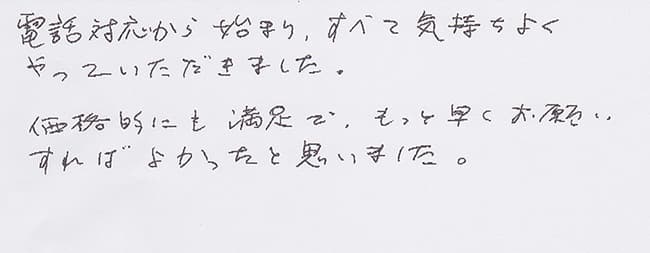 電話対応から始まり、すべて気持ちよく
やっていただきました。
価格的にも満足で、もっと早くお願い
すればよかったと思いました。